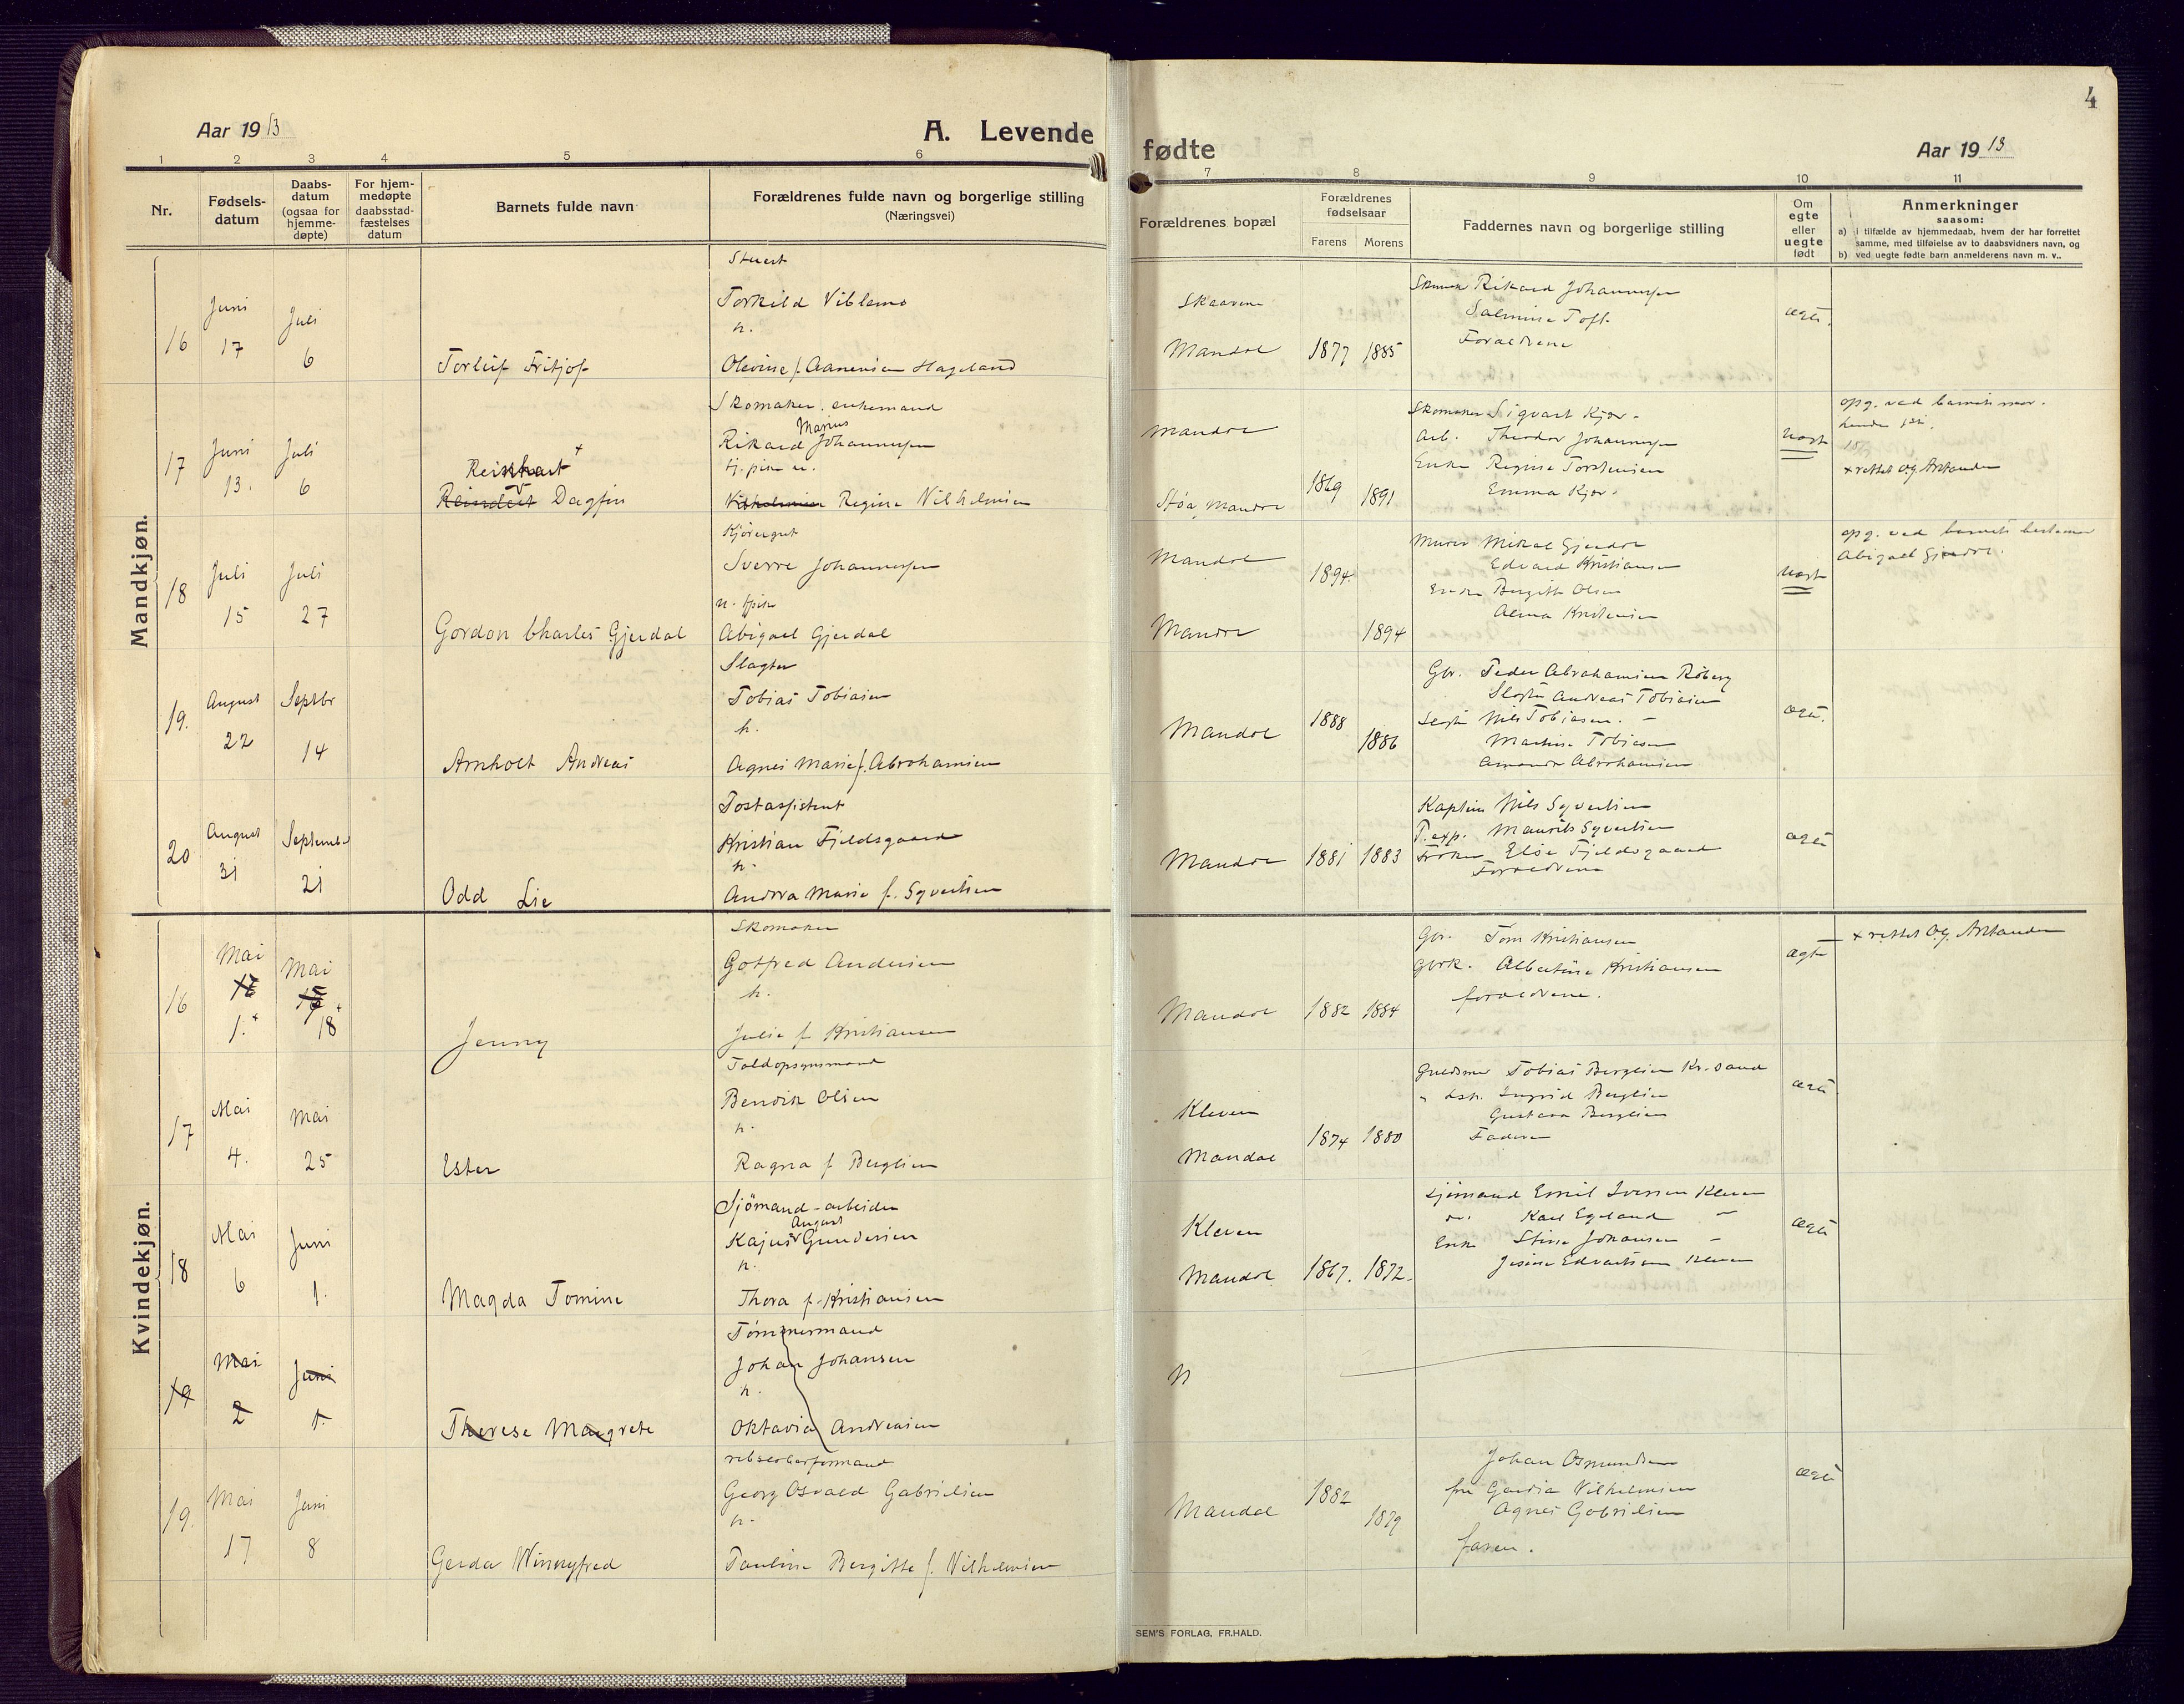 Aar 1913
A. Levende
1 2 3 4 5 6
Nr.
Fødsels-
datum
Daabs-
datum
(ogsaa for
hjemme-
døpte)
For hjem-
medøpte
daabsstad-
fæstelses
datum
Barnets fulde navn
Forældrenes fulde navn og borgerlige stilling
(Næringsvei)
Mandkjøn.
Stuert
16 Juni 17 Juli 6
Torleif Fritjof
Torkild Viblemo
h.
Olevine f. Aanensen Hageland
Skomaker. enkemand
17 Juni 13. Juli 6
Reinhart +
Reindert Dagfin
Rikard Marius Johannessen
tj. pike u.
Vilhelmsen Regine Vilhelmsen
Kjøregut
18 Juli 15 Juli 27
Gordon Charles Gjerdal
Sverre Johannesen
u. tj.pike
Abigael Gjerdal
Slagter
19. August 22 Septbr 14
Arnholt Andreas
Tobias Tobiasen
h.
Agnes Marie f. Abrahamsen
Postassistent
20 August 31 September 21
Odd Lie
Kristian Fjeldsgaard
h.
Andrea Marie f. Syvertsen
Kvindekjøn.
Skomaker
16 Mai 1.+ Mai 18+
Jenny
Gotfred Andersen
h.
Julie f. Kristiansen
Toldopsynsmand
17 Mai 4. Mai 25
Ester
Bendik Olsen
h.
Ragna f. Berglien
Sjømand - arbeider
18 Mai 6 Juni 1.
Magda Tomine
Kajus August Gundersen
h.
Thora f. Kristiansen
Tømmermand
19 Mai 2 Juni 1.
Therese Margrete
Johan Johansen
h.
Oktavia Andreasen
19. Mai 17 Juni 8
Gerda Winnyfred
Georg Osvald Gabrielsen
h.
Pauline Bergitte f. Vilhelmsen
4
fødte
Aar 1913
7 8 9 10 11
Forældrenes bopæl
Forældrenes
fødselsaar
Farens Morens
Faddernes navn og borgerlige stilling
Om
egte
eller
uegte
født
Anmerkninger
saasom:
a) i tilfælde av hjemmedaab, hvem der har forrettet
samme, med tilføielse av to daabsvidners navn, og
b) ved uegte fødte barn anmelderens navn m. v..
Skaavene
Mandal 1877 1885
Rikard Johannessen
Salmine Toft
Forældrene
ægte.
Mandal
Støa, Mandal 1869 1891
Skomaker Sigvart Kjær
Arb. Theodor Johannessen
Enke Regine Torstensen
Emma Kjær
uægte
opg. ved barnets mor.
+ rettet
Mandal 1894
Mandal 1894
Murer Mikal Gjerdal
Edvard Kristiansen
Bergitte Olsen
Alma Kristensen
uægte
opg. ved barnets bestemor
Abigael Gjerdal.
Mandal 1888 1886
Gbr. Peder Abrahamsen Røberg
Slagter Andreas Tobiasen
Nils Tobiasen.
Martine Tobiasen
Amanda Abrahamsen
ægte.
Mandal 1881 1883
Kaptein Nils Syvertsen
P. exp. Maurits Syvertsen
Frøken Elise Fjeldsgaard
Forældrene
ægte
Mandal 1882 1884
Gbr. Tom Kristiansen
Gbrk. Albertine Kristiansen
forældrene.
ægte
+ rettet
Kleven
Mandal 1874 1880
Guldsmed Tobias Berglien Kr.sand
Ingrid Berglien
Gustava Berglien
Faderen
ægte
Kleven
Mandal 1867. 1872.
Sjømand Emil Iversen Kleven
Karl Egeland
Enke Stine Johansen
Josine Edvardsen Kleven
ægte
M
Mandal 1882 1879
Johan Osmundsen
fru Gardia Vilhelmsen
Agnes Gabrielsen
faren.
ægte
SEM'S FORLAG, FR.HALD.